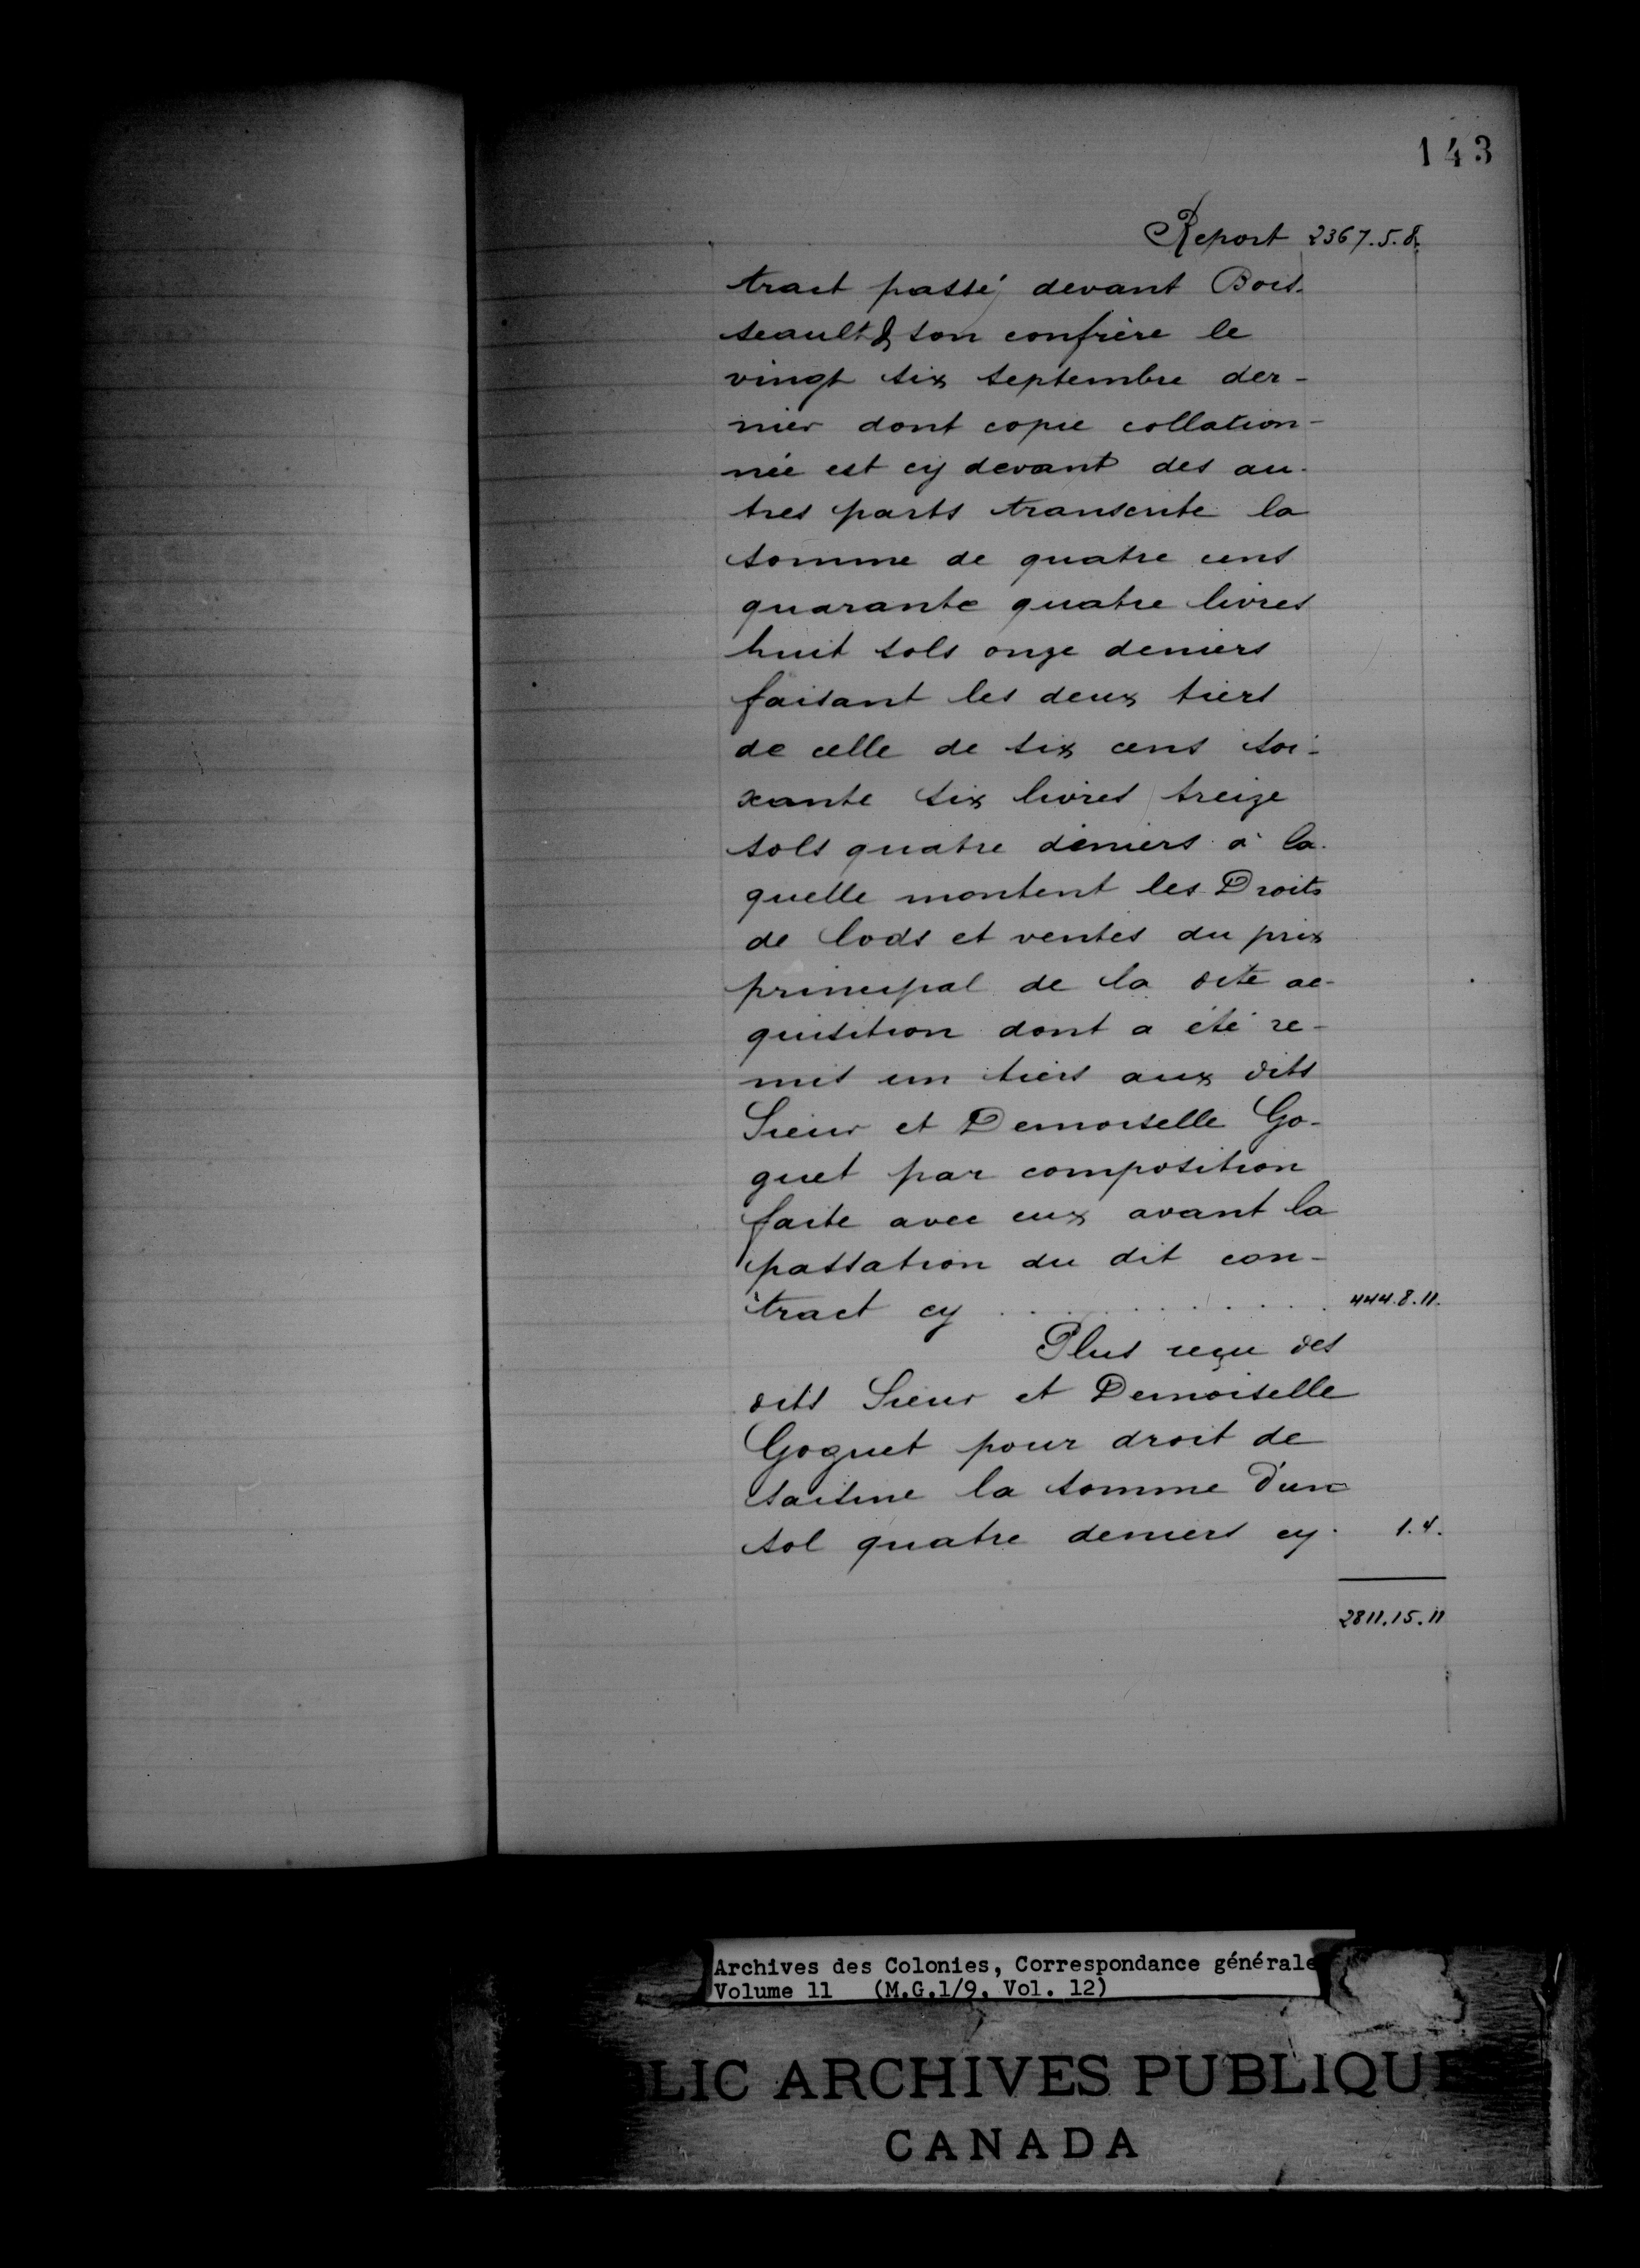 143
Report 2367.5.8.
tract passé devant Bois-
seault & son confrère le
vingt six septembre der-
nier dont copie collation-
née est cy devant des au-
tres parts transcrite la
somme de quatre cens
quarante quatre livres
huit sols onze deniers
faisant les deux tiers
de celle de six cens soi-
xante six livres treize
sols quatre deniers à la-
quelle montent les Droits
de lods et ventes du prix
principal de la dite ac-
quisition dont a été re-
mis un tiers aux dits
Sieur et Demoiselle Go-
guet par composition
faite avec eux avant la
passation du dit con-
tract cy . . . . . . . . . . . . 444.8.11.
Plus reçu des
dits Sieur et Demoiselle
Goguet pour droit de
saisine la somme d'un
sol quatre deniers cy. 1.4.
2811.15.11
Archives des Colonies, Correspondance générale
Volume 11 (M.G.1/9, Vol. 12)
LIC ARCHIVES PUBLIQUE
CANADA